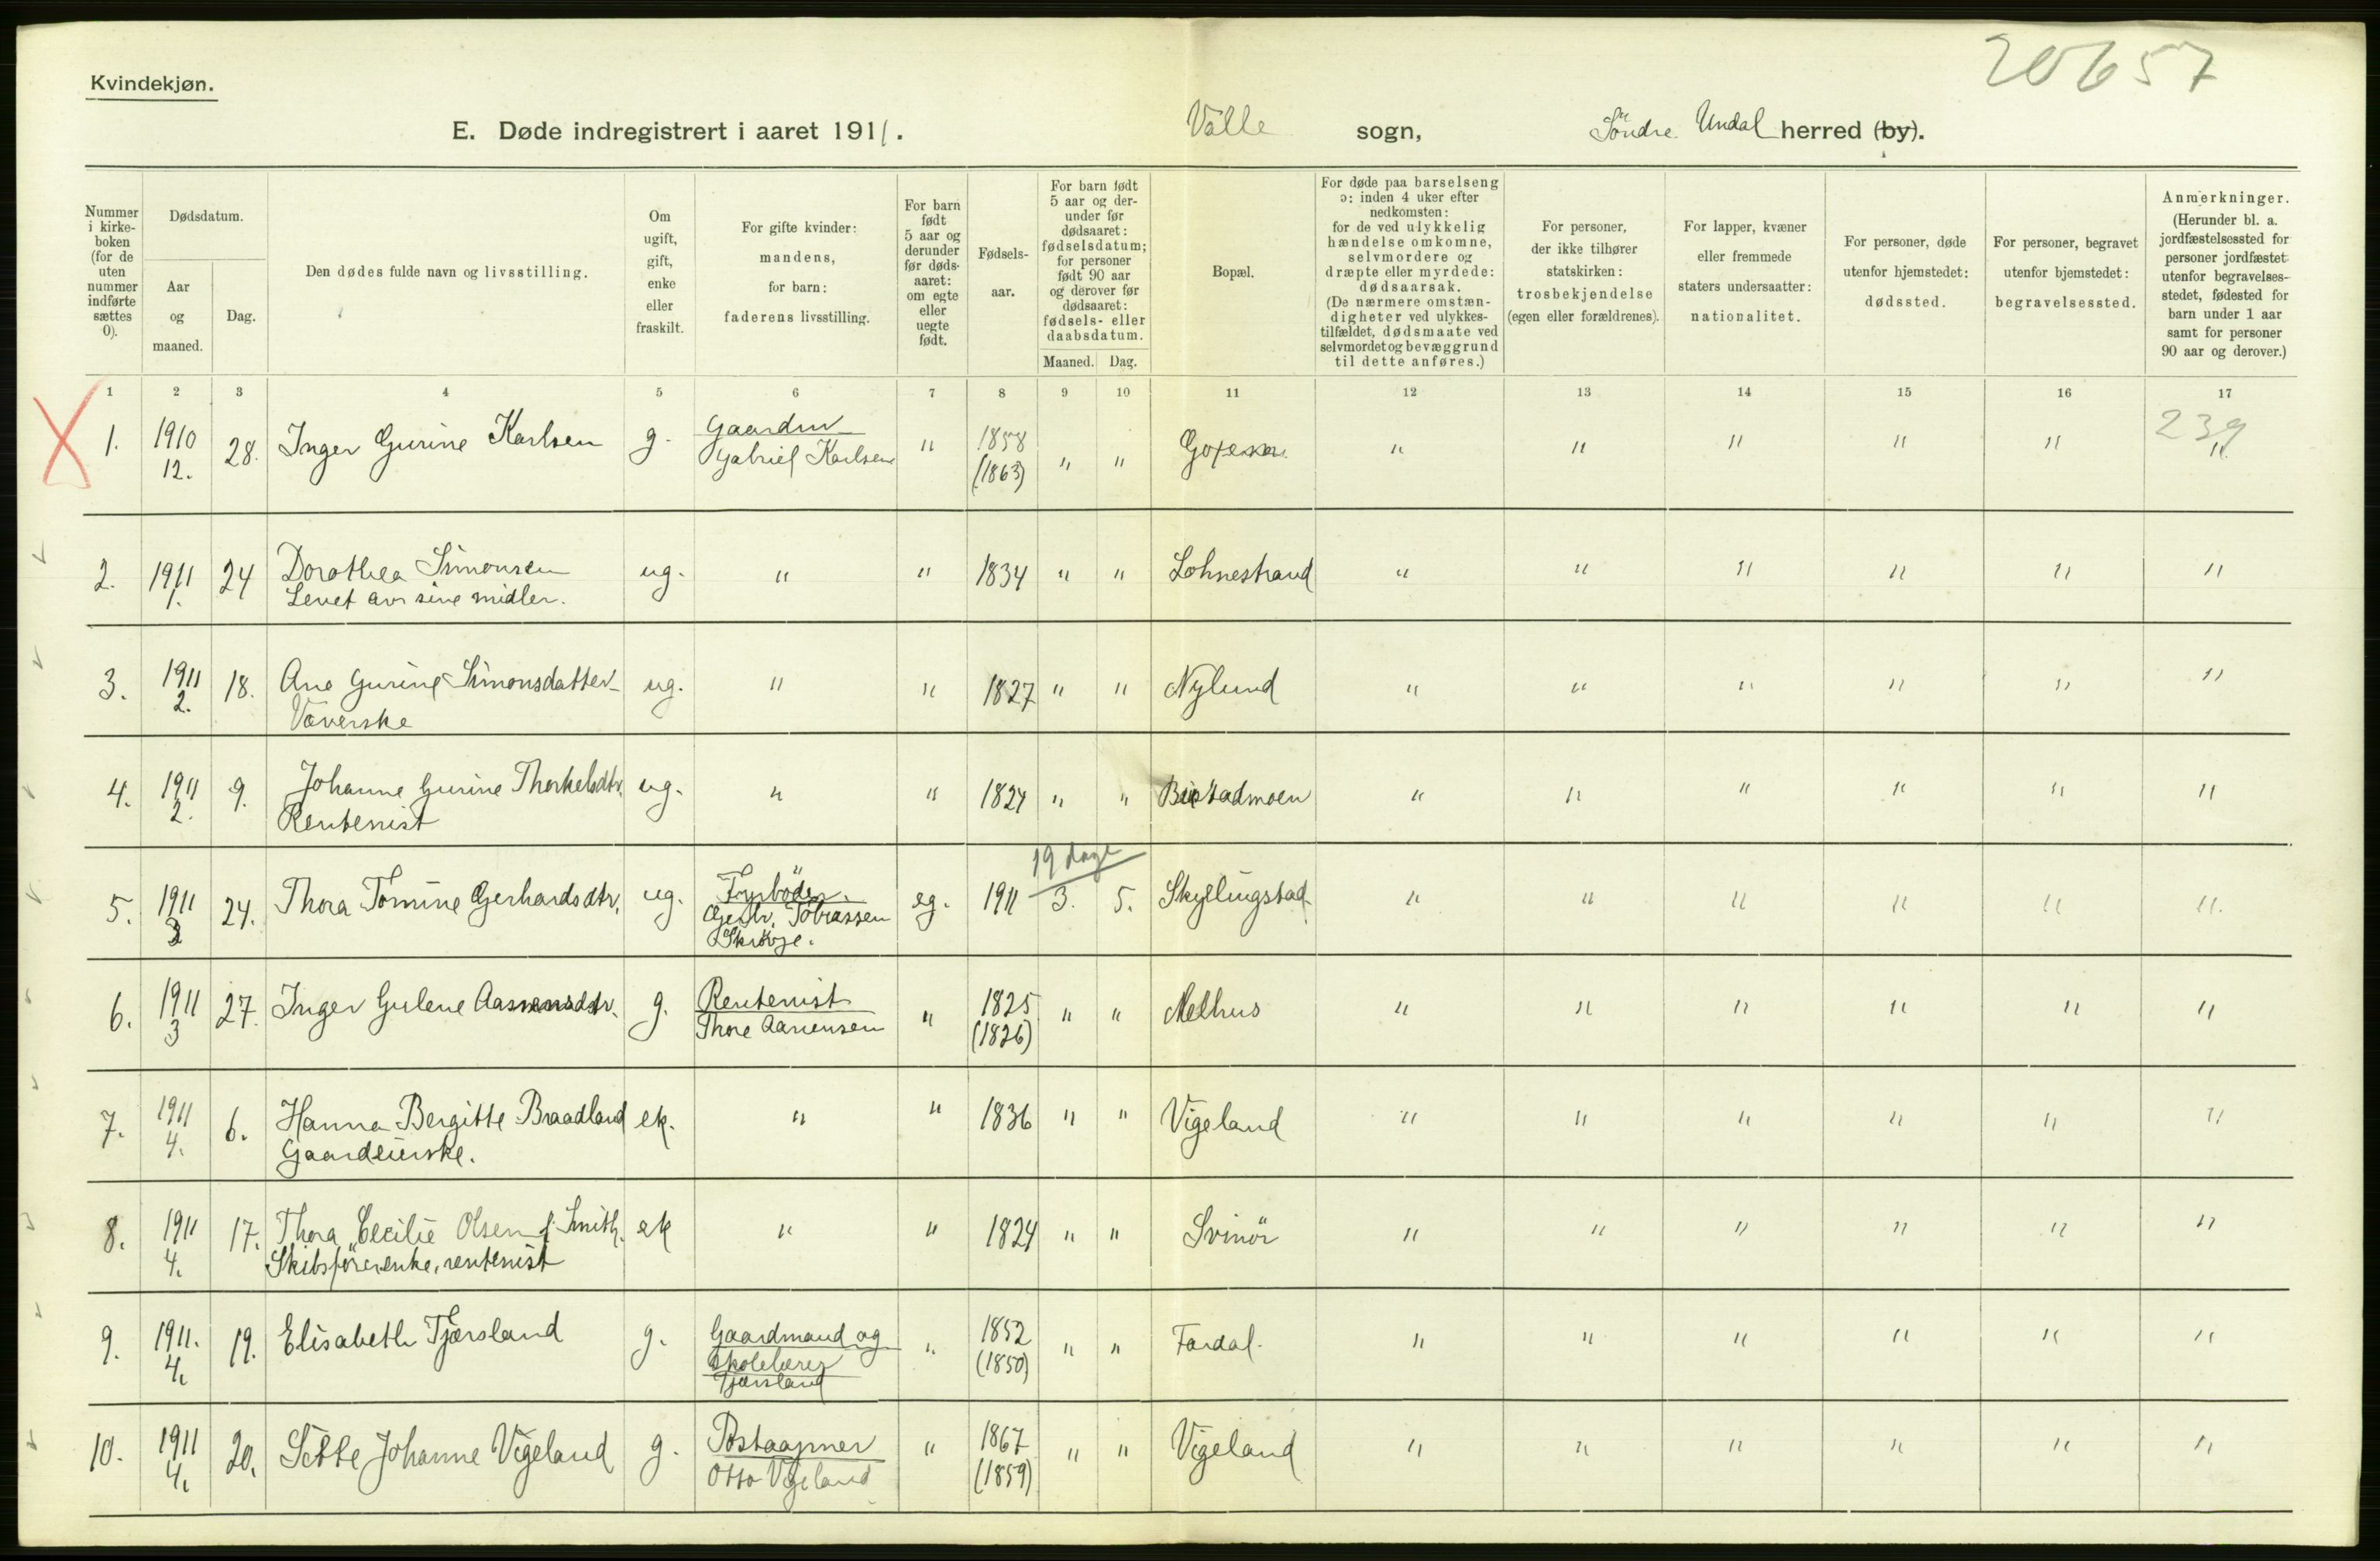 20657
Kvindekjøn.
E. Døde indregistrert i aaret 1911.
Valle sogn, Söndre Undal herred (by).
Nummer i kirke-boken (for de uten nummer indførte sættes 0).
Dødsdatum.
Aar og maaned.
Dag.
Den dødes fulde navn og livsstilling.
Om ugift, gift, enke eller fraskilt.
For gifte kvinder: mandens, for barn: faderens livsstilling.
For barn født 5 aar og derunder før døds-aaret: om egte eller uegte født.
Fødsels-aar.
For barn født 5 aar og der-under før dødsaaret: fødselsdatum; for personer født 90 aar og derover før dødsaaret: fødsels- eller daabsdatum.
Maaned. Dag.
Bopæl.
For døde paa barselseng ɔ: inden 4 uker efter nedkomsten: for de ved ulykkelig hændelse omkomne, selvmordere og dræpte eller myrdede: dødsaarsak. (De nærmere omstæn-digheter ved ulykkes-tilfældet, dødsmaate ved selvmordet og bevæggrund til dette anføres.)
For personer, der ikke tilhører statskirken: trosbekjendelse (egen eller forældrenes).
For lapper, kvæner eller fremmede staters undersaatter: nationalitet.
For personer, døde utenfor hjemstedet: dødssted.
For personer, begravet utenfor hjemstedet: begravelsessted.
Anmerkninger. (Herunder bl. a. jordfæstelsessted for personer jordfæstet utenfor begravelses-stedet, fødested for barn under 1 aar samt for personer 90 aar og derover.)
1 2 3 4 5 6 7 8 9 10 11 12 13 14 15 16 17
239
1. 1910 12. 28. Inger Gurine Karlsen g. Gaardm Gabriel Karlsen " 1858 (1863) " " " " " " " "
2. 1911 1. 24 Dorothea Simonsen Levet av sine midler. ug. " " 1834 " " Lohnestrand " " " " " "
3. 1911 2. 18. Ane Gurine Simonsdatter Væverske ug. " " 1827 " " Nylund " " " " " "
4. 1911 2. 9. Johanne Gurine Thorkelsdtr. Rentenist ug. " " 1824 " " " " " " " "
19 dage
5. 1911 3 24. Thora Tomine Gerhardsdtr. ug. Fyrböder. Gerh. Tobiassen eg. 1911 3. 5. Skyllingstad. " " " " " "
6. 1911 3 27. Inger Gulene g. Rentenist Thore Aanensen " 1825 (1826) " " Melhus " " " " " "
7. 1911 4. 6. Hanna Bergitte Braadland Gaardeierske. ek. " " 1836 " " Vigeland " " " " " "
8. 1911 4. 17. Thora Cecilie Olsen f. Smith. Skibsförerenke, rentenist ek " " 1824 " " Svinör " " " " " "
9. 1911. 4. 19. Elisabeth Tjærsland g. Gaardmand og Skolelærer Tjærsland " 1852 (1850) " " Fardal. " " " " " "
10. 1911 4. 20. Sitte Johanne Vigeland g. Postaapner Otto Vigeland " 1867 (1859) " " Vigeland " " " " " "